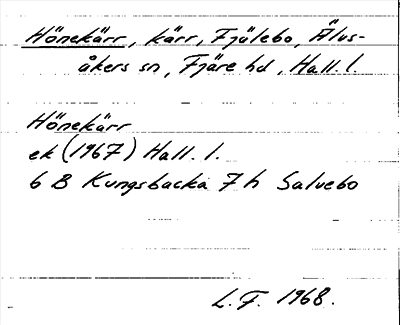 Hönekärr, kärr, Fjälebo, Älvs-
åkers sn, Fjäre hd, Hall. l.
Hönekärr
ek (1967) Hall. l.
6 B Kungsbacka 7 h Salvebo
L. F. 1968.